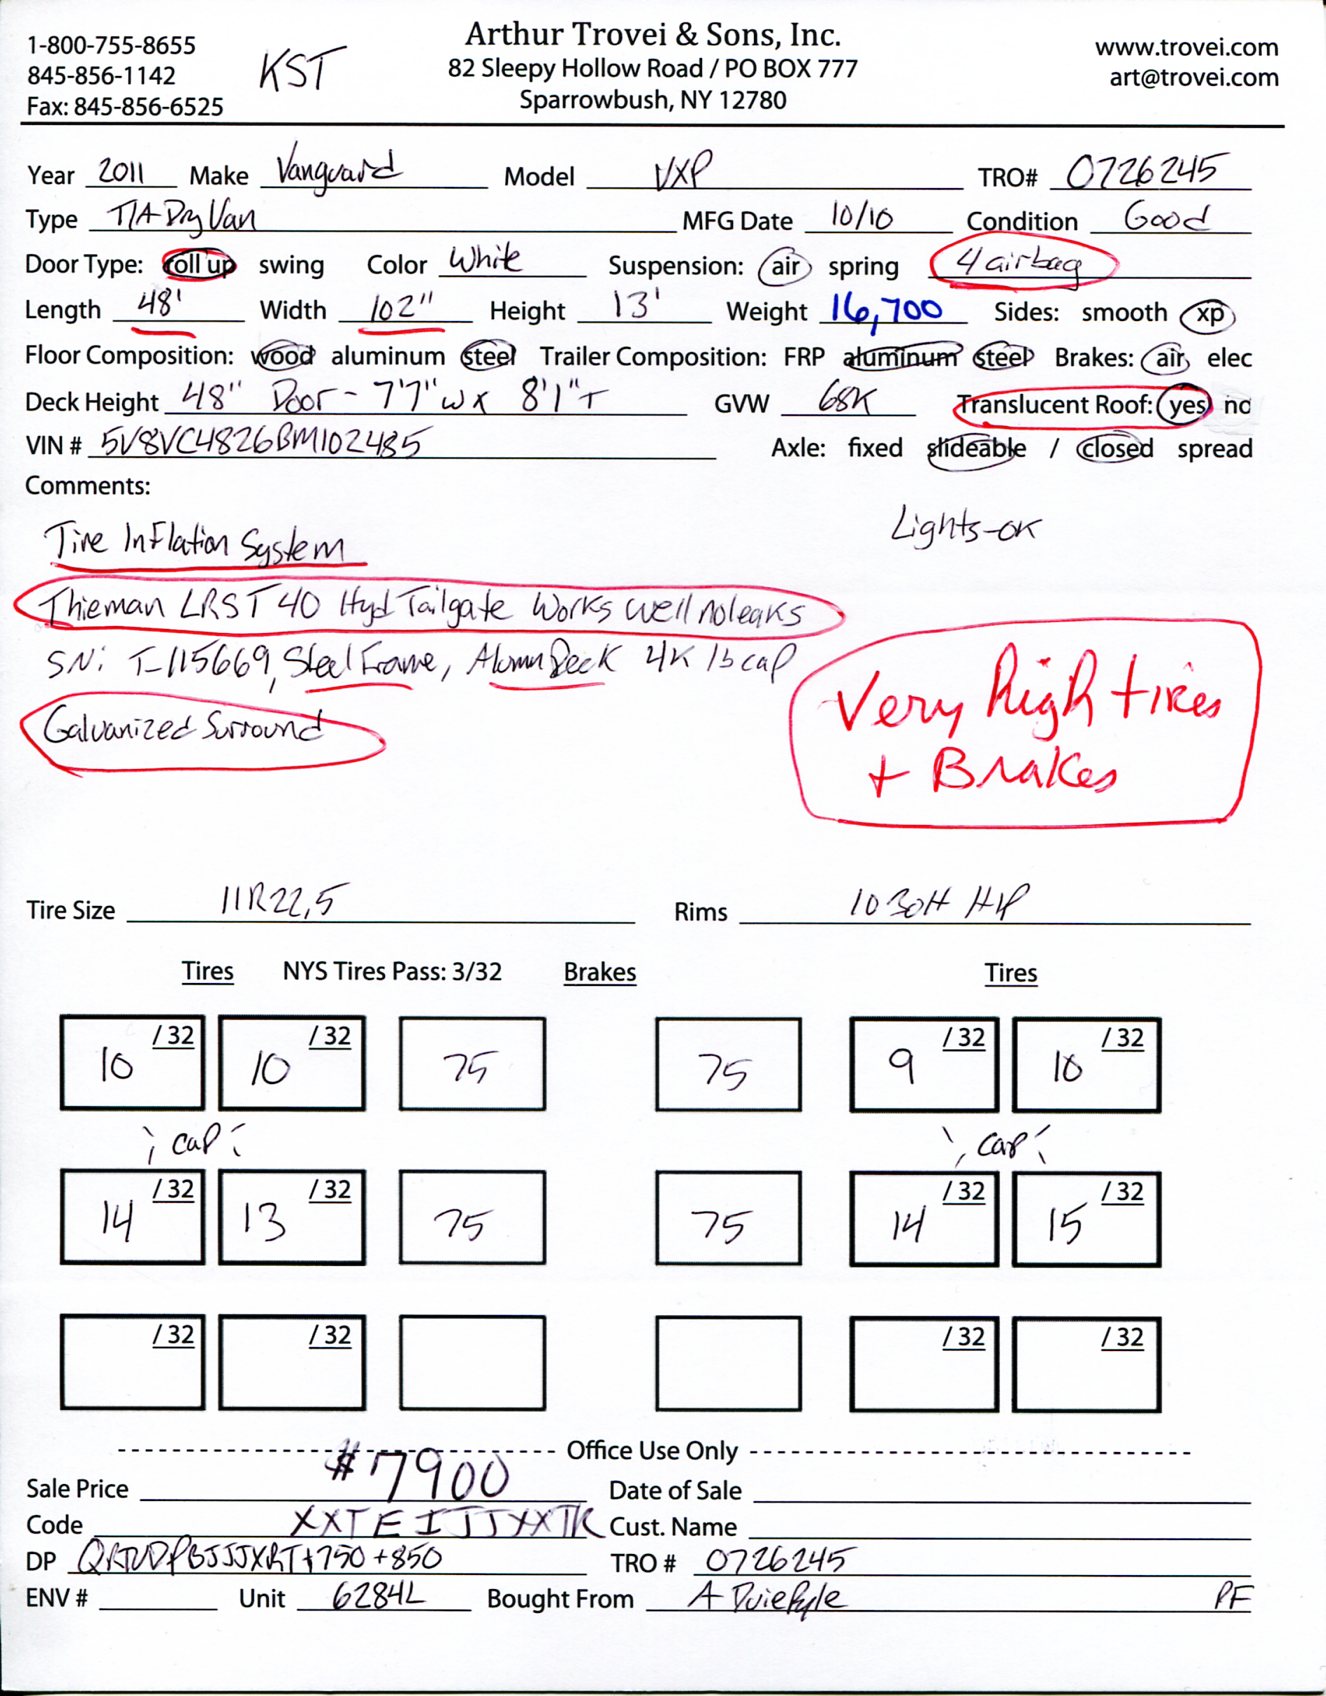 1-800-755-8655
845-856-1142
Fax: 845-856-6525
KST
Arthur Trovei & Sons, Inc.
82 Sleepy Hollow Road / PO BOX 777
Sparrowbush, NY 12780
www.trovei.com
art@trovei.com
Year 2011 Make Vanguard Model VXP TRO# 0726245
Type T/A Dry Van MFG Date 10/10 Condition Good
Door Type: roll up swing Color White Suspension: air spring 4 airbag
Length 48' Width 102" Height 13' Weight 16,700 Sides: smooth xp
Floor Composition: wood aluminum steel Trailer Composition: FRP aluminum steel Brakes: air elec
Deck Height 48" Door - 7'7" W x 8'1" T GVW 68K Translucent Roof: yes no
VIN # 5V8VC4826BM102485 Axle: fixed slideable / closed spread
Comments:
Lights-OK
Tire Inflation System
Thieman LRST 40 Hyd Tailgate Works well no leaks
SN: T-115669, Steel Frame, Alumn Deck 4K lb cap
Galvanized Surround
Very high tires
+ Brakes
Tire Size 11R22,5 Rims 10 Bolt H/P
Tires NYS Tires Pass: 3/32 Brakes Tires
10 /32 10 /32 75 75 9 /32 10 /32
cap cap
14 /32 13 /32 75 75 14 /32 15 /32
/32 /32 /32 /32
Office Use Only
Sale Price #7900 Date of Sale
Code XXTEIJJXXTK Cust. Name
DP +750+850 TRO # 0726245
ENV # Unit 6284L Bought From A Duie Pyle PF